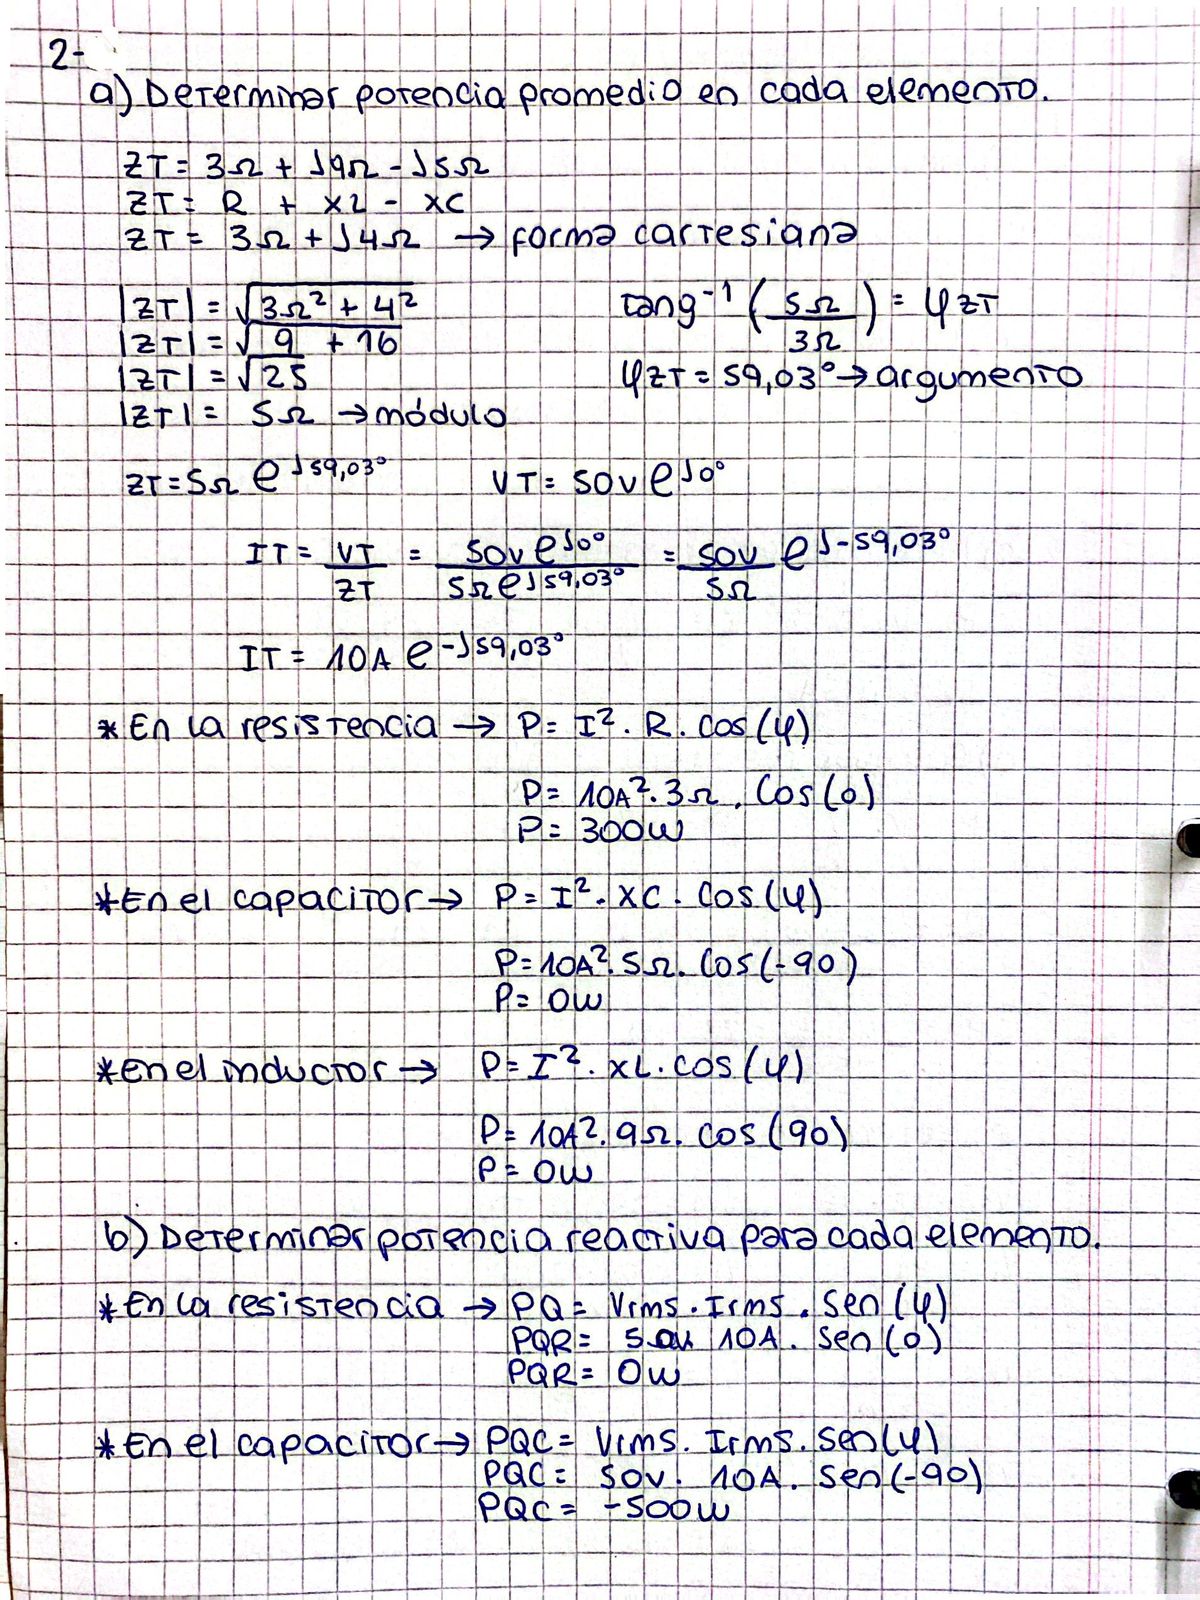 2-
a) Determinar potencia promedio en cada elemento.
ZT = 3Ω + J9Ω - J5Ω
ZT = R + XL - XC
ZT = 3Ω + J4Ω → forma cartesiana
|ZT| = √3Ω² + 4² tang⁻¹ (5Ω/3Ω) = φZT
|ZT| = √9 + 16
|ZT| = √25 φZT = 59,03° → argumento
|ZT| = 5Ω → módulo
ZT = 5Ω e^J59,03° VT = 50V e^J0°
IT = VT/ZT = 50V e^J0°/5Ω e^J59,03° = 50V/5Ω e^J-59,03°
IT = 10A e^-J59,03°
* En la resistencia → P = I² . R . Cos(φ)
P = 10A² . 3Ω . Cos(0)
P = 300W
* En el capacitor → P = I² . XC . Cos(φ)
P = 10A² . 5Ω . Cos(-90)
P = 0W
* En el inductor → P = I² . XL . cos(φ)
P = 10A² . 9Ω . cos(90)
P = 0W
b) Determinar potencia reactiva para cada elemento.
* En la resistencia → PQ = Vrms . Irms . Sen(φ)
PQR = 10A . Sen(0)
PQR = 0W
* En el capacitor → PQC = Vrms . Irms . Sen(φ)
PQC = 50V . 10A . Sen(-90)
PQC = -500W